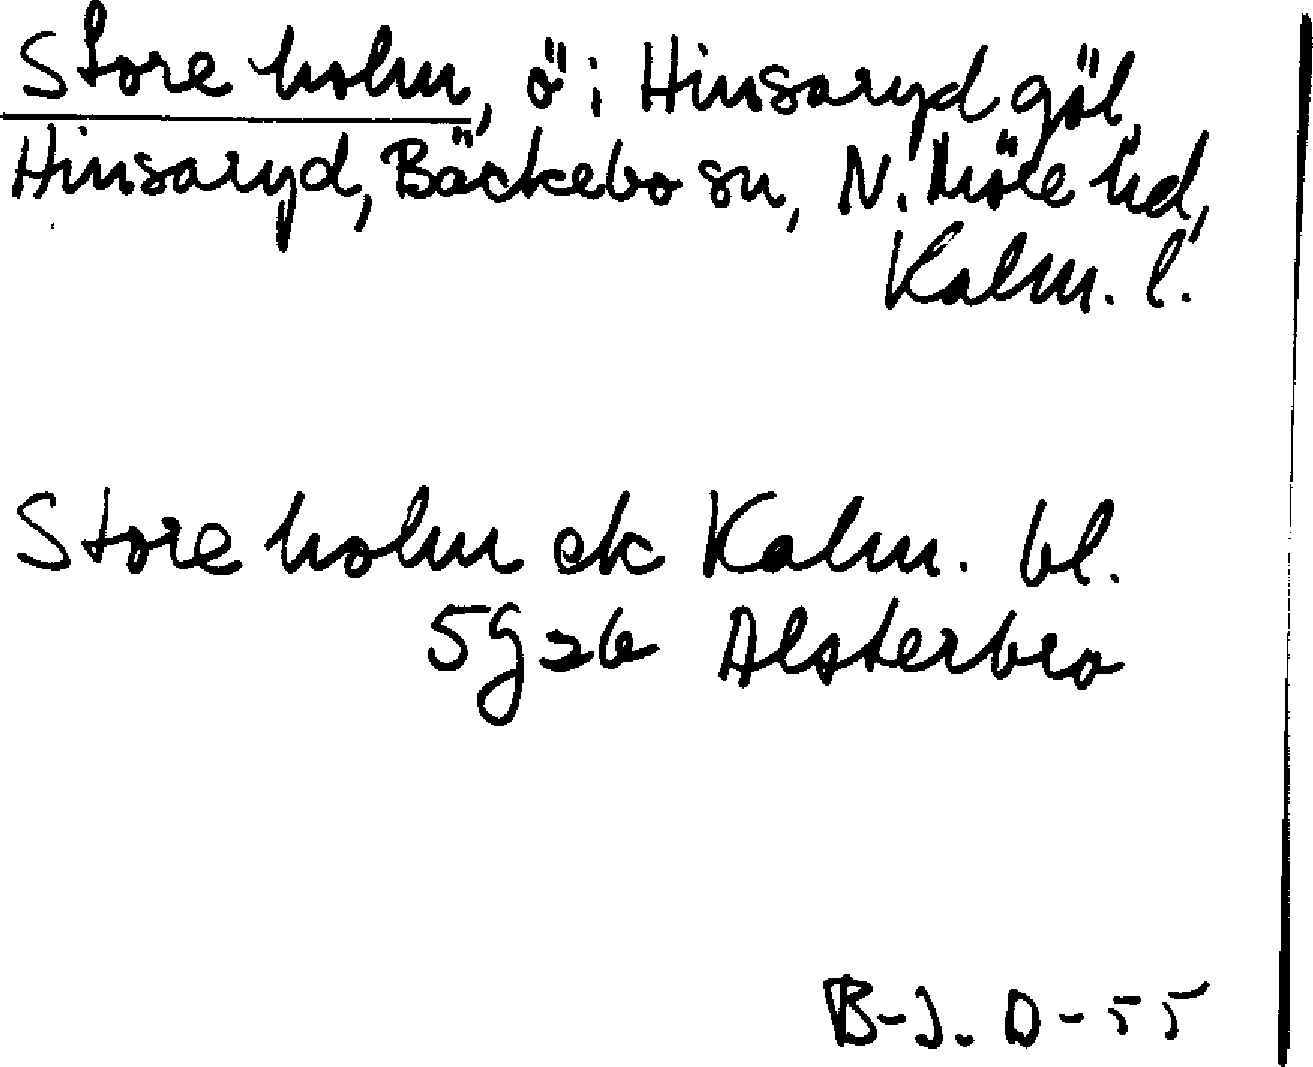 Store holm, ö i Hinsaryd göl,
Hinsaryd, Bäckebo sn, N. Möre hd,
Kalm. l.
Store holm ek Kalm. bl.
5g26 Alsterbro
B-J. D-55